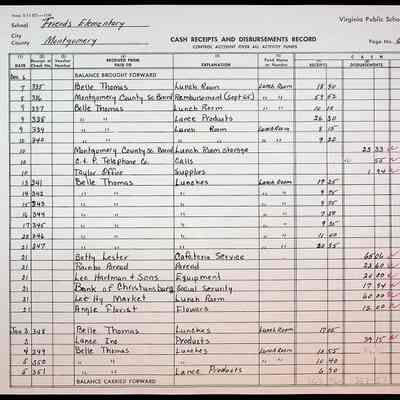 School Friends Elementary
Virginia Public Scho
City
County Montgomery
CASH RECEIPTS AND DISBURSEMENTS RECORD
CONTROL ACCOUNT OVER ALL ACTIVITY FUNDS
Page No.
DATE Receipt or Check No. RECEIVED FROM PAID TO EXPLANATION Fund Name or Number CASH RECEIPTS DISBURSEMENTS
Dec. BALANCE BROUGHT FORWARD
7 335 Belle Thomas Lunch Room Lunch Room 18 50
8 336 Montgomery County Sc. Board Reimbursement (Sept 65) " " 59 52
9 337 Belle Thomas Lunch Room " " 10 15
9 338 " " Lance Products " " 26 30
9 339 " " Lunch Room Lunch Room 8 15
10 340 " " " " 9 20
10 Montgomery County Sc. Board Lunch Room storage 23 33
10 C. & P. Telephone Co. Calls 55
10 Taylor Office Supplies 1 94
13 341 Belle Thomas Lunches Lunch Room 19 25
14 342 " " " " " 9 95
15 343 " " " " " 9 35
16 344 " " " " " 7 29
17 345 " " " " " 9 35
20 346 " " " " " 11 40
21 347 " " " " " 20 35
21 Betty Lester Cafeteria Service
21 Rainbo Bread Bread 23 60
21 Lee Hartman & Sons Equipment
21 Bank of Christiansburg Social Security 17 94
21 Lee Hy Market Lunch Room
21 Angle Florist Flowers
Jan 3 348 Belle Thomas Lunches Lunch Room 17 05
3 Lance Inc. Products 39 15
4 349 Belle Thomas Lunches Lunch Room 12 55
5 350 " " " " " 10 40
5 351 " " Lance Products " 6 30
BALANCE CARRIED FORWARD